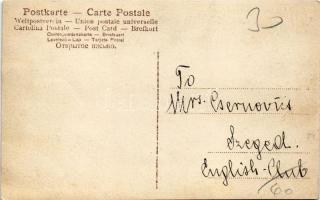 Postkarte — Carte Postale
Weltpostverein — Union postale universelle
Cartolina Postale — Post Card — Brefkort
Correspondenzkarte — Briefkaart
Levelező-Lap — Tarjeta Postal
Открытое письмо.
30
To
Mrs. Csernovics
Szeged.
English-Club
60